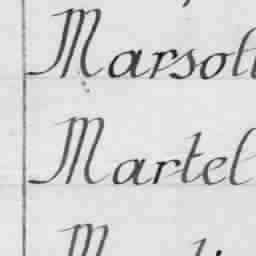 Marsol
Martel